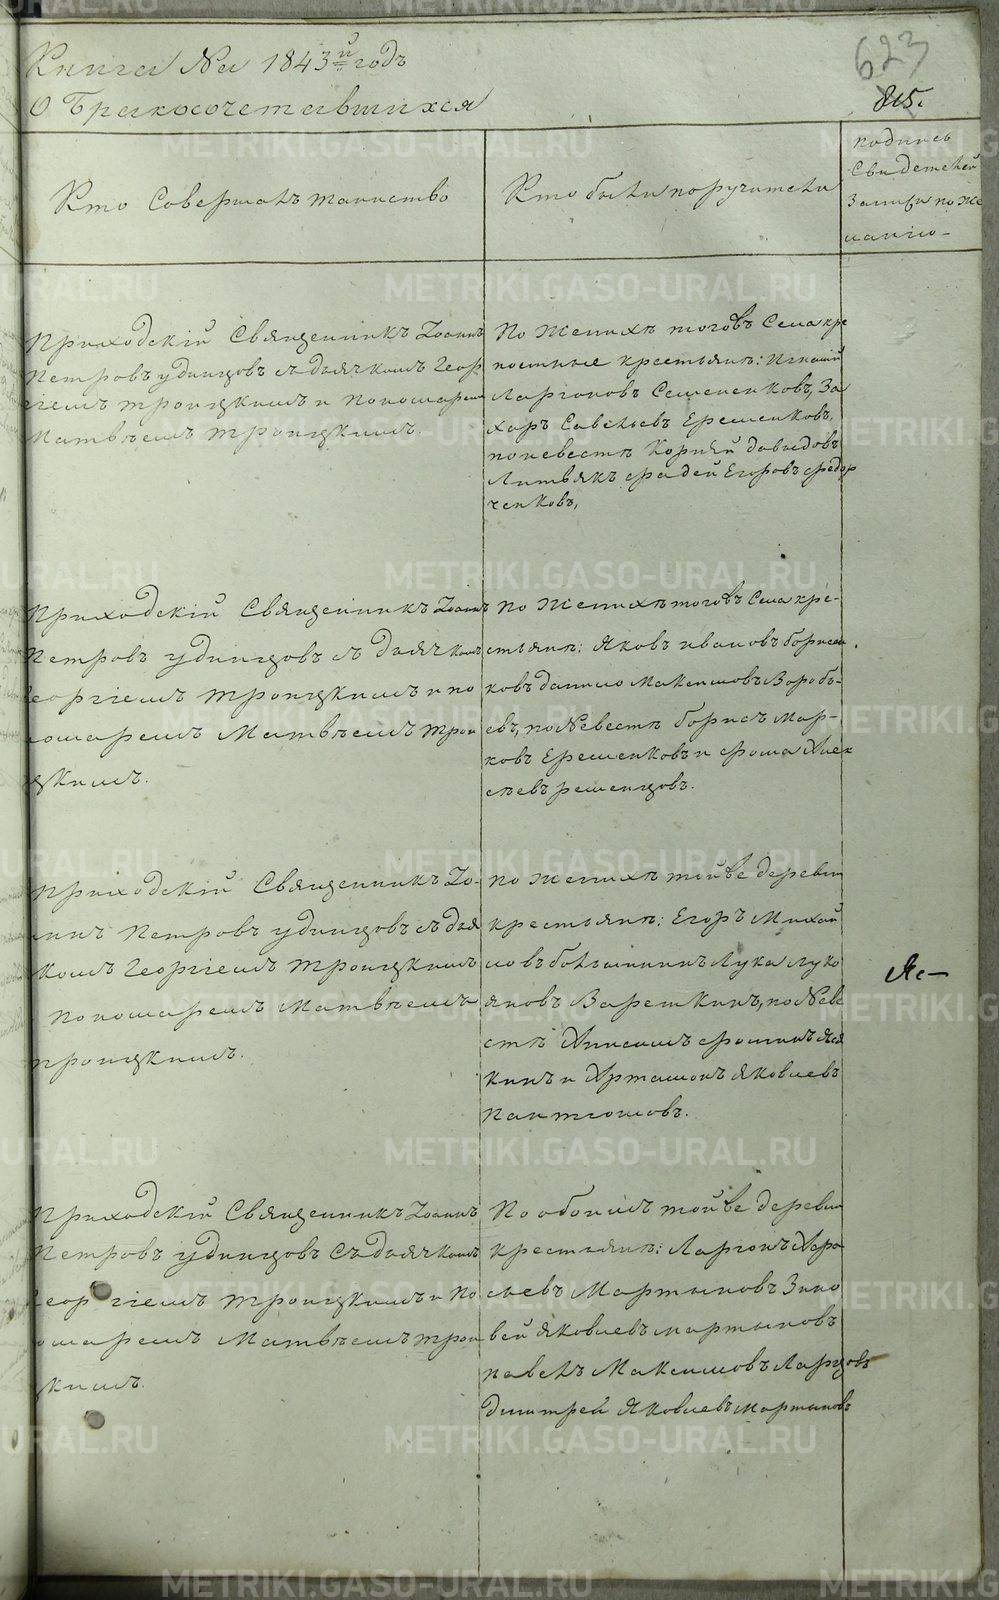 Книга На 1843й годъ
О Бракосочетавшихся
623
815.
Кто Совершалъ таинство
Кто были поручители
подпись
Свидетелей
Записи по же
ланію
Приходскій Священникъ Іоаннъ
Петровъ удинцовъ съ дьячкомъ Геор
гіемъ троицкимъ и Пономаремъ
Матвѣемъ троицкимъ.
По Женихѣ тогожъ Села кре
постные крестьяне: Игнатій
Ларіоновъ Семененковъ, За
харъ Савельевъ Еременковъ,
поневестѣ Корнѣй давыдовъ
Литвякъ фадей Егоровъ федор
ченковъ,
Приходскій Священникъ Іоаннъ
Петровъ удинцовъ съ дьячкомъ
Георгіемъ троицкимъ и по
номаремъ Матвѣемъ трои
цкимъ.
По Женихѣ тогожъ Села кре-
стьяне: Яковъ ивановъ борисен
ковъ данило Максимовъ Воробь-
евъ, по Невестѣ борисъ Мар-
ковъ Еременковъ и фома Алек
сѣевъ решенцовъ.
Приходскій Священникъ Іо-
аннъ Петровъ удинцовъ съ дья
комъ Георгіемъ троицкимъ
Пономаремъ Матвѣемъ
троицкимъ.
По Женихѣ тойже деревни
крестьяне: Егоръ Михай
ловъ больнинъ Лука луко
яновъ Варешкинъ, по Неве
стѣ Анисимъ фоминъ Яся
кинъ и Артамонъ Яковлевъ
Пантюшовъ.
Яс-
Приходскій Священникъ Іоаннъ
Петровъ удинцовъ Съ дьячкомъ
Георгіемъ троицкимъ и По
номаремъ Матвѣемъ трои
цкимъ.
По обоимъ тойже деревни
крестьяне: Ларіонъ Аѳа
сьевъ Мартыновъ Зино
вей Яковлевъ мартыновъ
павелъ Максимовъ Ларцовъ
дмитрей Яковлевъ мартыновъ
METRIKI.GASO-URAL.RU